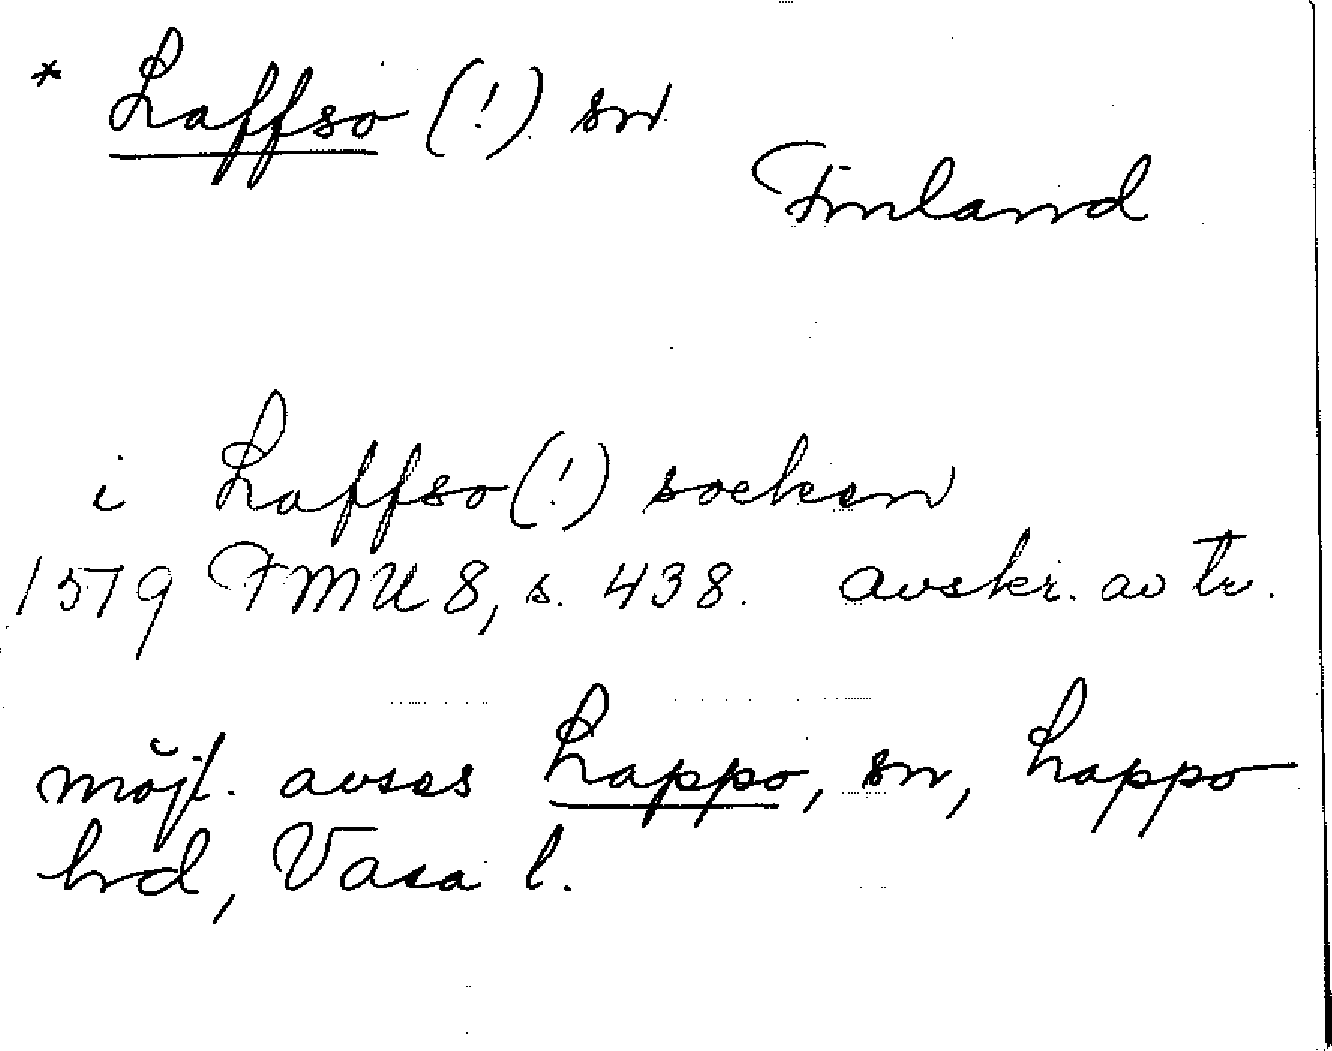 * Laffso (!) sn
Finland
i Laffso (!) socken
1519 FMU 8, s. 438. avskr. av tr.
möjl. avses Lappo, sn, Lappo
hrd, Vasa l.